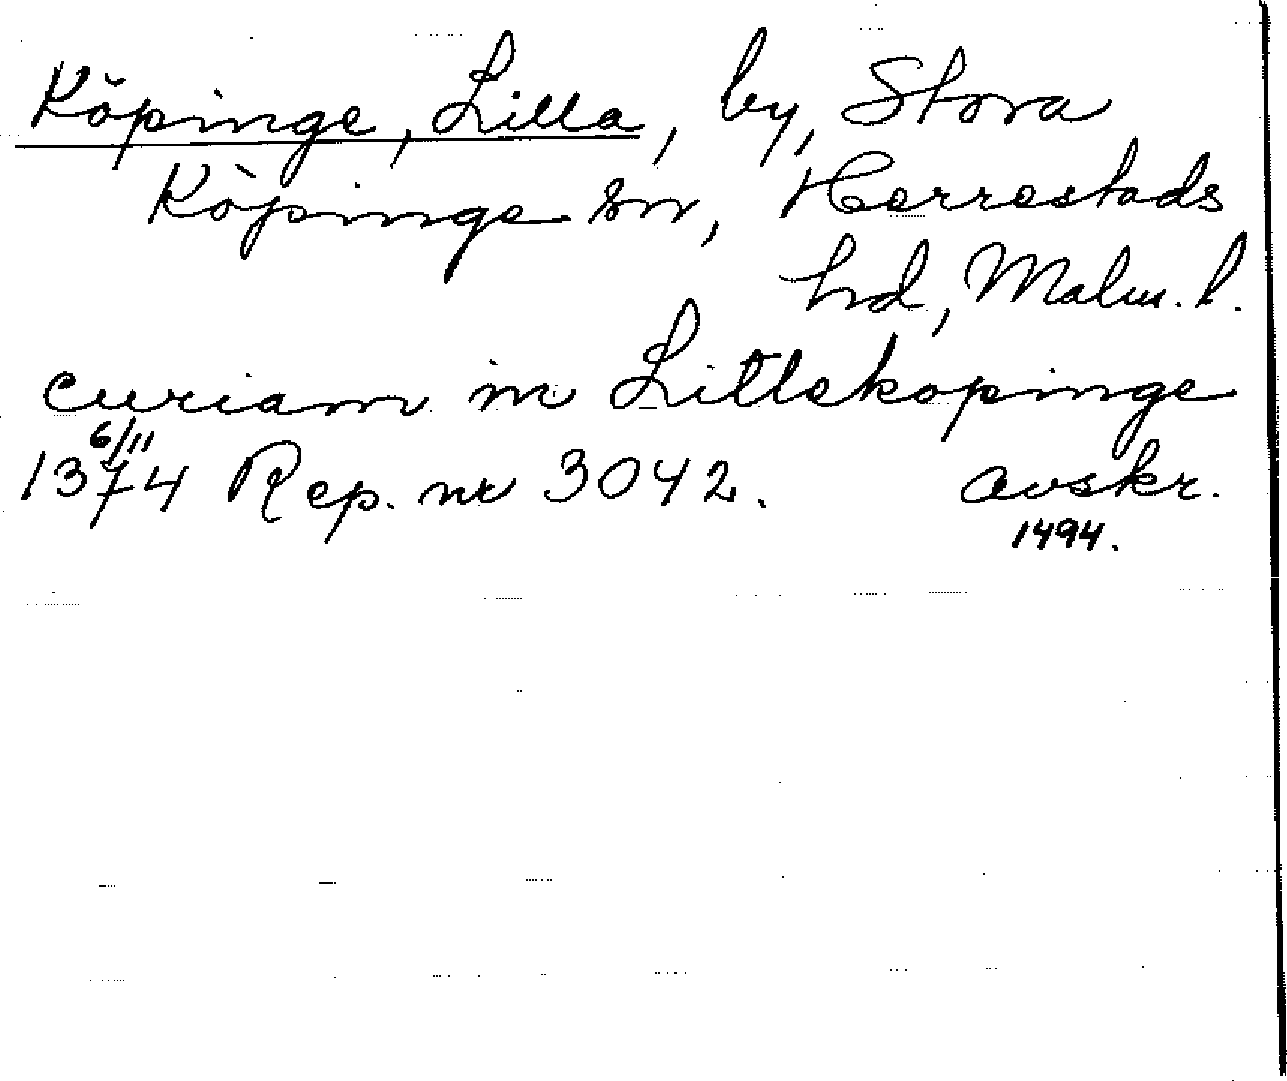 Köpinge, Lilla, by, Stora
Köpinge sn, Herrestads
hd, Malm. l.
curiam in Litlskopinge
6/11
1374 Rep. nr 3042. avskr.
1494.